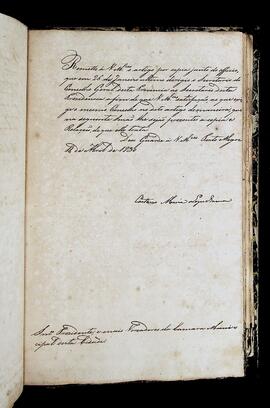 Remetto á V. M.ces o artigo por copia junto do officio,
que em 26 de Janeiro ultimo dirigio o Secretario do
Conselho Geral desta Provincia ao Secretario desta
Presidencia a fim de que V. M.ces satisfação ao que
o mesmo Conselho no dito artigo
na seguinte Sessão lhe seja presente a copia e
Relação, de que elle trata.
Deos Guarde á V. M.ces Porto Alegre
de Abril de 1834
Caetano Maria Lopes Gama
Snr.es Presidente, e mais Vereadores da Camara Muni-
cipal desta Cidade